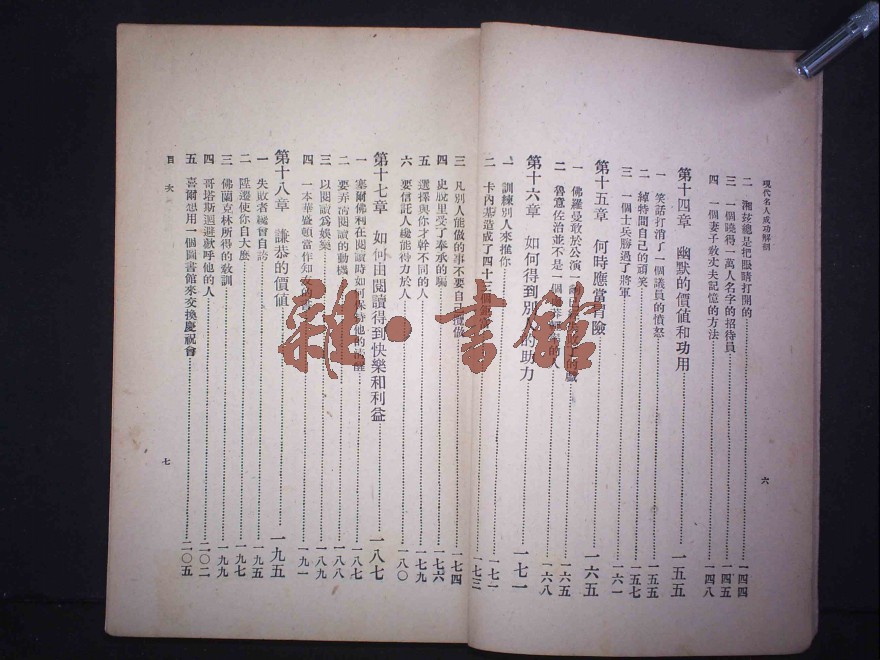 現代名人成功解剖
二 湘茲總是把眼睛打開的 一四四
三 一個曉得一萬人名字的招待員 一四五
四 一個妻子敎丈夫記憶的方法 一四八
第十四章 幽默的價值和功用 一五五
一 笑話打消了一個議員的憤怒 一五五
二 綽特問自己的頑笑 一五七
三 一個士兵勝過了將軍 一六一
第十五章 何時應當冒險 一六五
一 佛羅曼敢於公演一齣 的戲 一六五
二 魯意佐治並不是一個 的人 一六八
第十六章 如何得到別人的助力 一七一
一 訓練別人來推你 一七一
二 卡內基造成了四十三個 一七三
六
三 凡別人能做的事不要自己 做 一七四
四 史脫里受了奉承的騙 一七六
五 選擇與你才幹不同的人 一七九
六 要信託人纔能得力於人 一八〇
第十七章 如何由閱讀得到快樂和利益 一八七
一 塞爾佛利在閱讀時如何保持他的 一八七
二 要弄淸閱讀的動機 一八八
三 以閱讀爲娛樂 一八九
四 一本華盛頓當作知 一九一
第十八章 謙恭的價値 一九五
一 失敗者纔會自誇 一九五
二 陞遷使你自大麽 一九七
三 佛蘭克林所得的敎訓 一九九
四 哥塔斯迴避歡呼他的人 二〇二
五 喜爾想用一個圖書館來交換慶祝會 二〇五
目次
七
雜·書館